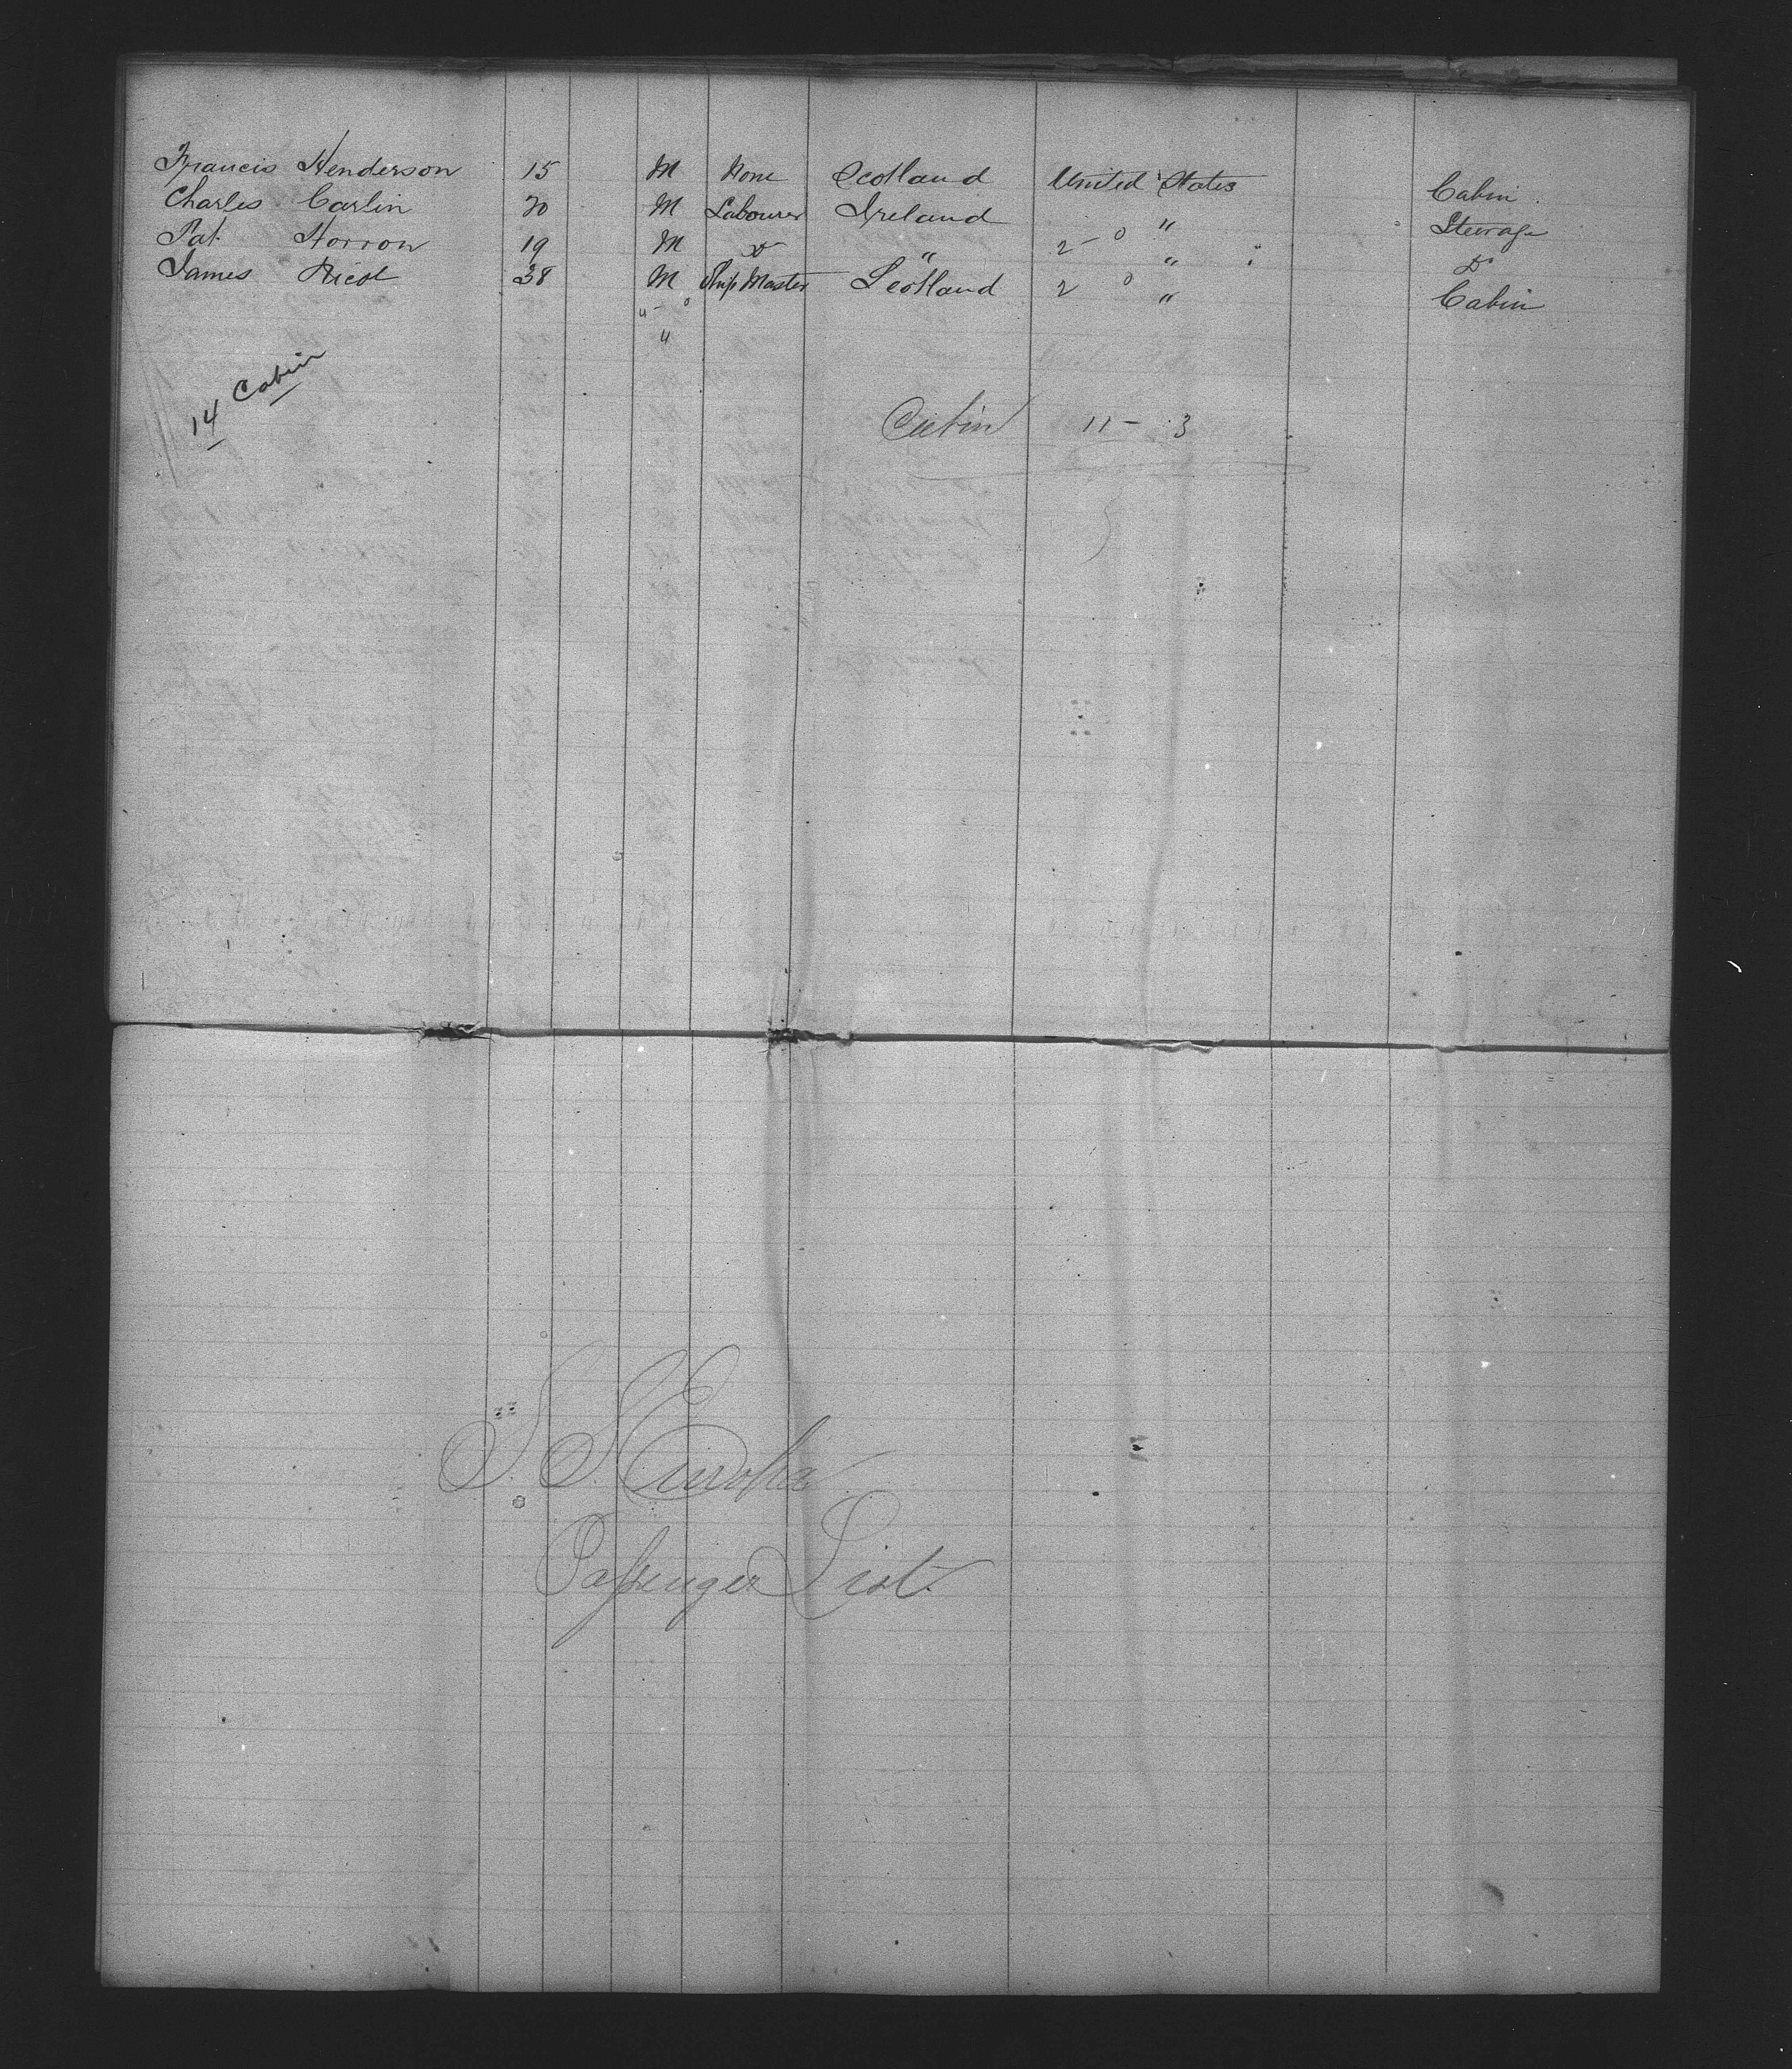 Francis Henderson 15 M None Scotland United States Cabin
Charles Carlin 20 M Labourer Ireland " Steerage
Pat Horron 19 M Do " 2 - 0 " Do
James Nicol 38 M Ship Master Scotland 2 0 " Cabin
" - 0
"
14 Cabin
Cabin 11 - 3
S.S. Europa
Passenger List.